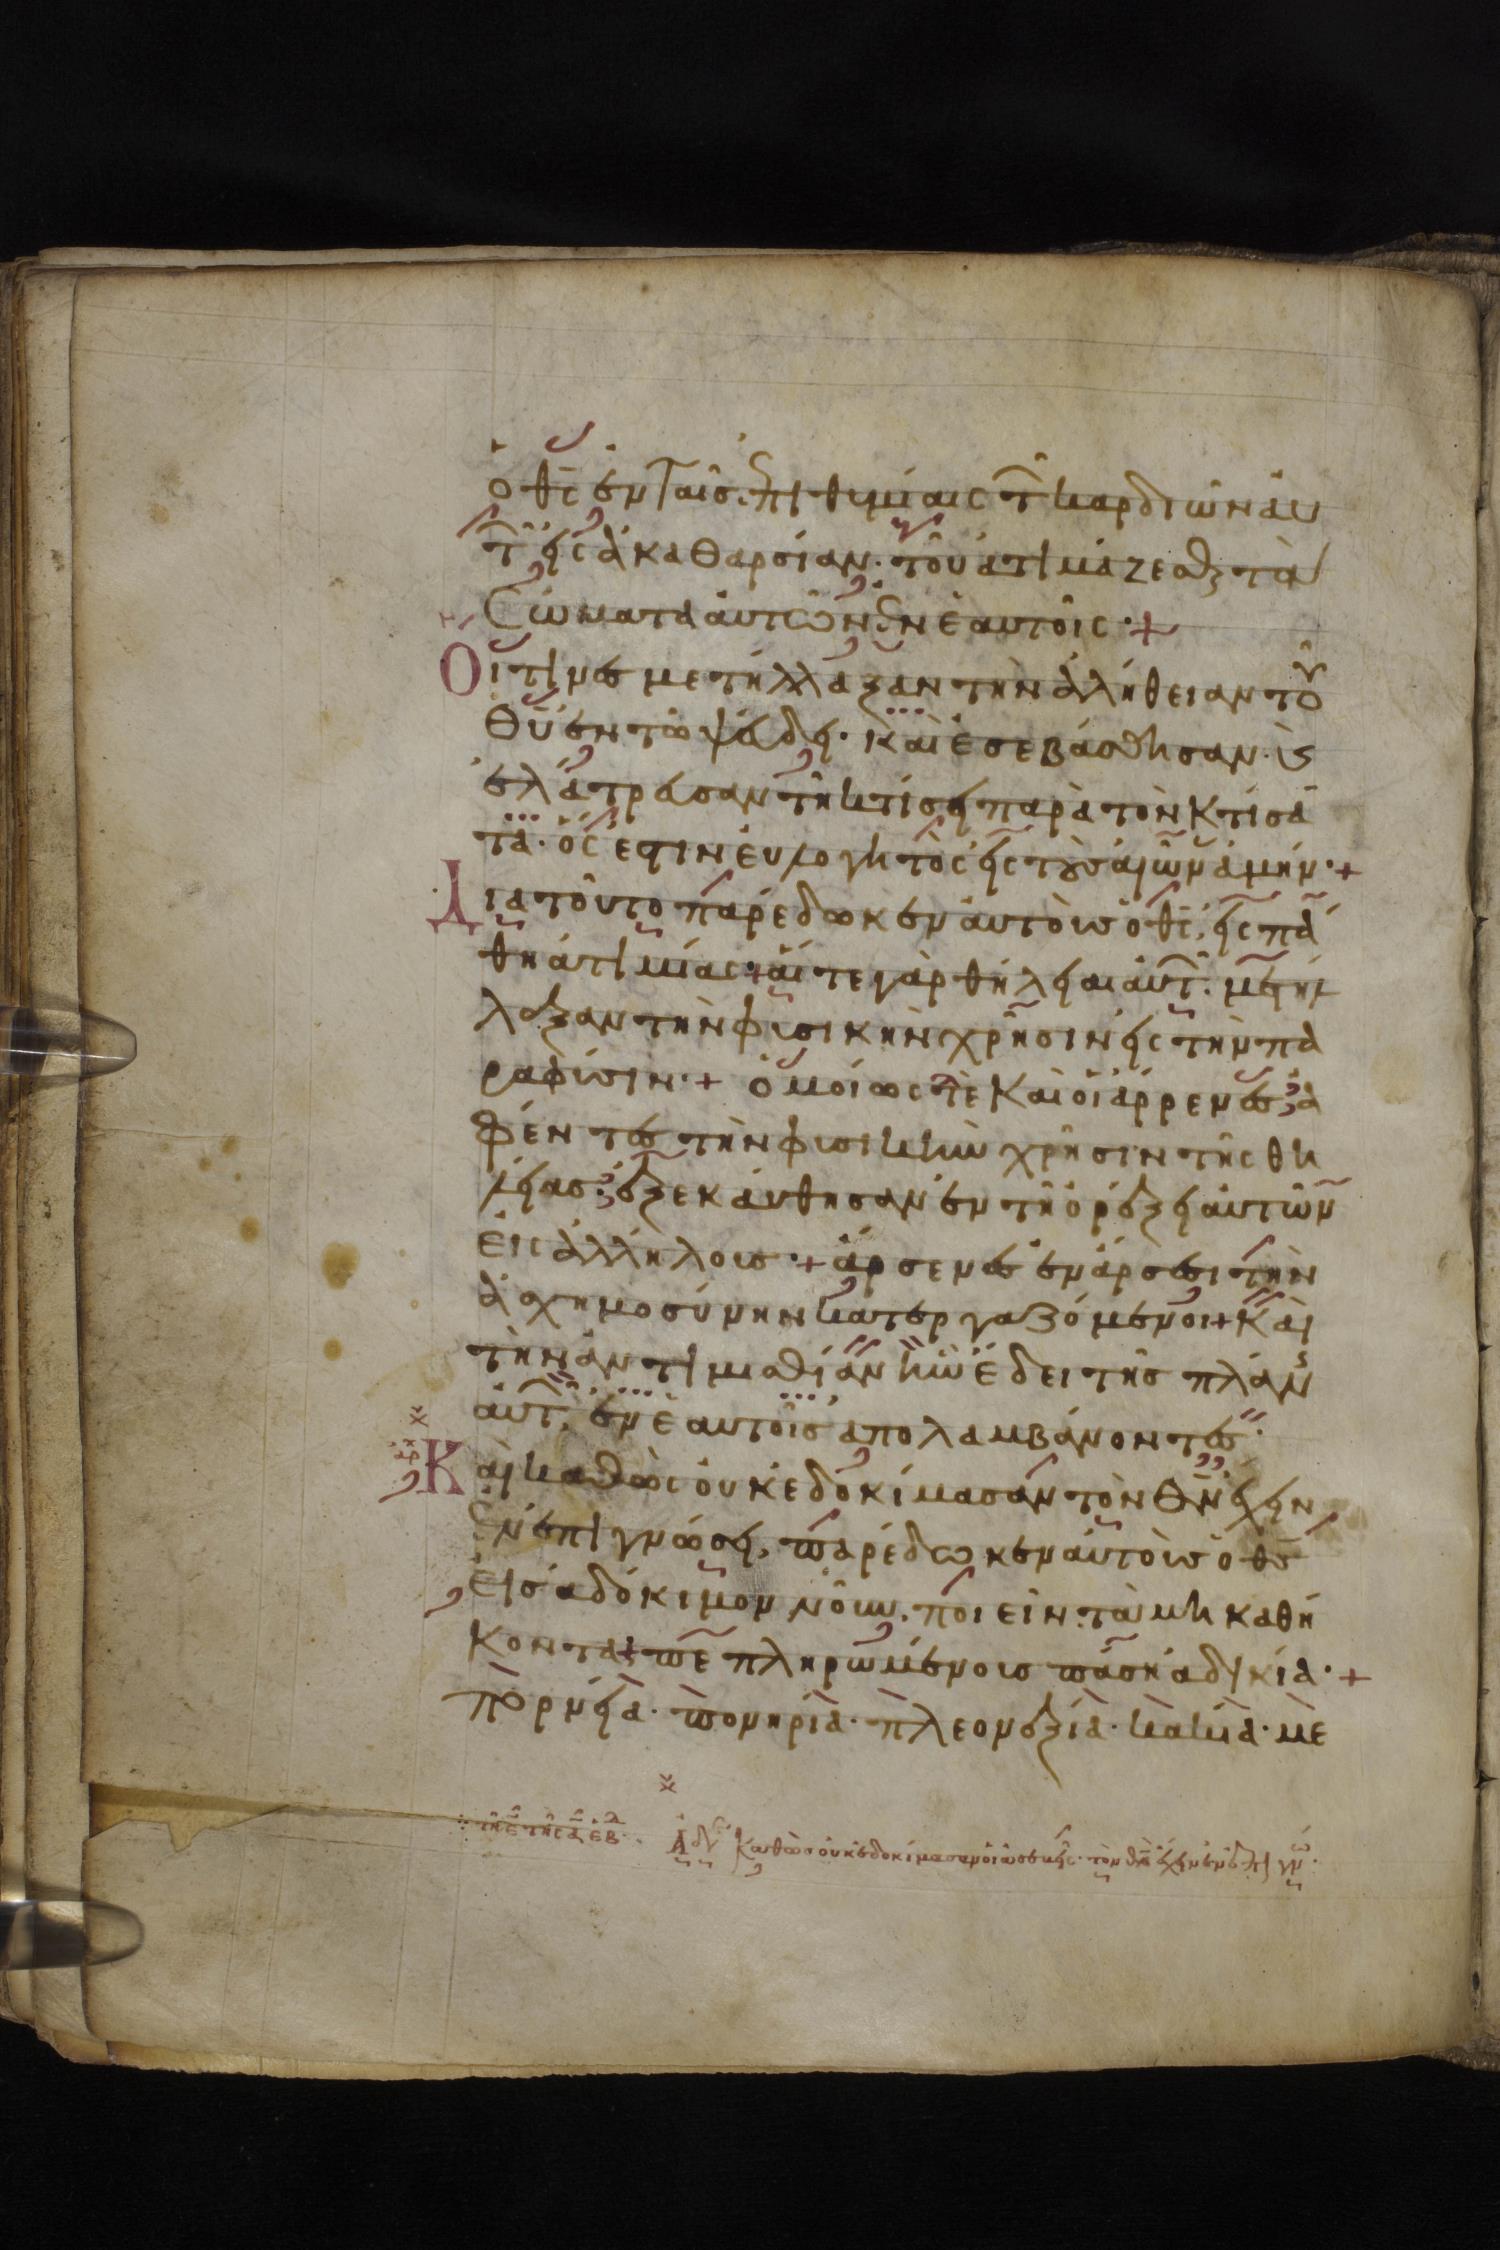 ὁ θς ἐν ταῖς ἐπιθυμίαις τ καρδιῶν αὐ
τ εἰς ἀκαθαρσίαν· τοῦ ἀτιμάζεσθαι τὰ
σώματα αὐτῶν ἐν ἑαυτοῖς·+
Οἵτινες μετήλλαξαν τὴν ἀλήθειαν τοῦ
θυ ἐν τῶ ψεύδει· καὶ ἐσεβάσθησαν· κ
ἐλάτρευσαν τῆ κτίσει παρὰ τὸν κτίσα
τα· ὅς ἐστιν εὐλογητὸς εἰς τοὺς αἰῶν ἀμήν·+
Διατοῦτο παρέδωκεν αὐτοὺς ὁ θς, εἰς πά
θη ἀτιμίας·+ αἵ τε γὰρ θήλειαι αὐτ. μετήλ
λαξαν τὴν φυσικὴν χρῆσιν εἰς τὴν πα
ραφύσιν·+ ὁμοίως τε καὶ οἱ ἄρρενες ἀ
φέντες τὴν φυσικὴν χρῆσιν τῆς θη
λείας· ἐξεκαύθησαν ἐν τῆ ὀρέξει αὐτῶν
εἰς ἀλλήλους·+ ἄρσενες ἐν ἄρσεσι τὴν
ἀσχημοσύνην κατεργαζόμενοι+ καὶ
τὴν ἀντιμισθίαν ἣν ἔδει τῆς πλάν
αὐτ, ἐν ἑαυτοῖς ἀπολαμβάνοντες·
Καὶ καθὼς οὐκ ἐδοκίμασαν τὸν θν ἔχειν
ἐν ἐπιγνώσει, παρέδωκεν αὐτοὺς ὁ θς
εἰς ἀδόκιμον νοῦν, ποιεῖν τὰ μὴ καθή
κοντα+ πε πληρωμένους πάση ἀδικία·+
πορνεία· πονηρία· πλεονεξία· κακία· με
τῆ ε τῆς α εβ
Ἀδ Καθὼς οὐκ ἐδοκίμασαν οἱ ἀσεβεῖς· τὸν θν ἔχειν ἐν ἐπιγν·